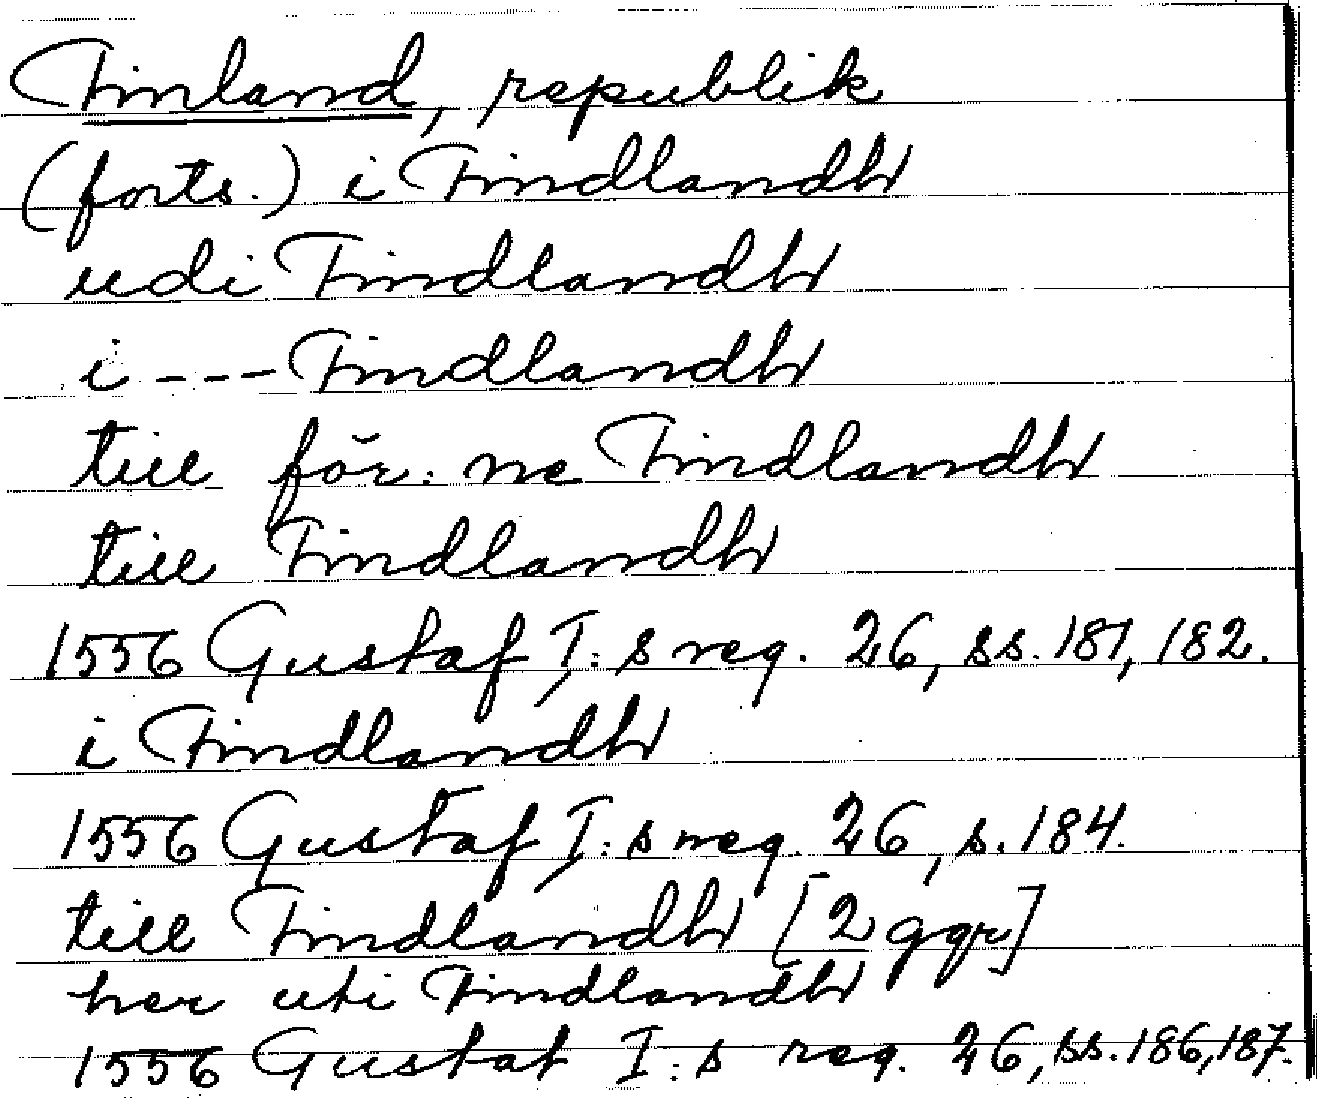 Finland, republik
(forts.) i Findlandh
udi Findlandh
i --- Findlandh
till för: ne Findlandh
till Findlandh
1556 Gustaf I:s reg. 26, ss. 181, 182.
i Findlandh
1556 Gustaf I:s reg. 26, s. 184.
till Findlandh [2 ggr]
her uti Findlandh
1556 Gustaf I:s reg. 26, ss. 186, 187.